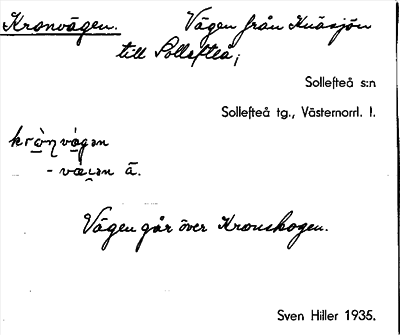 Kronvägen. Vägen från Knäsjön
till Sollefteå;
Sollefteå s:n
Sollefteå tg., Västernorrl. l.
Vägen går över Kronskogen.
Sven Hiller 1935.